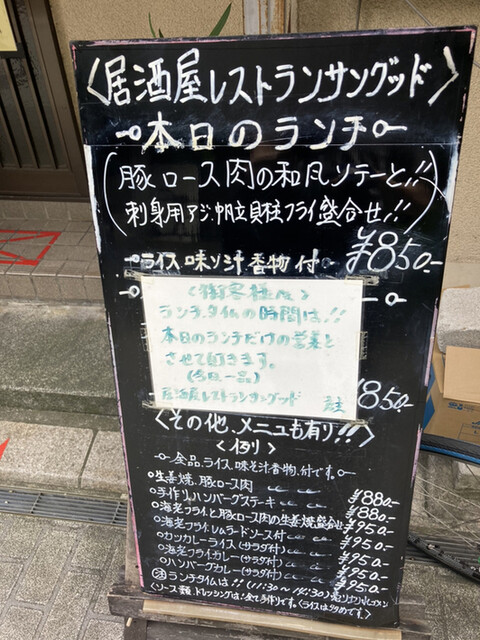 〈居酒屋レストランサングッド〉
本日のランチ
豚ロース肉の和風ソテーと!!
刺身用アジ、帆立貝柱フライ盛合せ!!
ライス味ソ汁香物付 ¥850-
〈御客様へ〉
ランチタイムの時間は!!
本日のランチだけの営業と
させて頂きます。
(今日一品)
居酒屋レストランサングッド
850-
〈その他、メニューも有り!!〉
〈例り〉
全品、ライス、味そ汁香物、付です。
生姜焼、豚ロース肉 ¥880-
手作りハンバーグステーキ ¥880-
海老フライと豚ロース肉の生姜焼盛合せ ¥950-
海老フライ、タルタルソース付 ¥950-
カツカレーライス(サラダ付) ¥950-
海老フライカレー(サラダ付) ¥950-
ハンバーグカレー(サラダ付) ¥950-
ランチタイムは!!(11:30~14:30)
〈ソース類、ドレッシングは、全て手作りです。〈ライスは多めです。〉